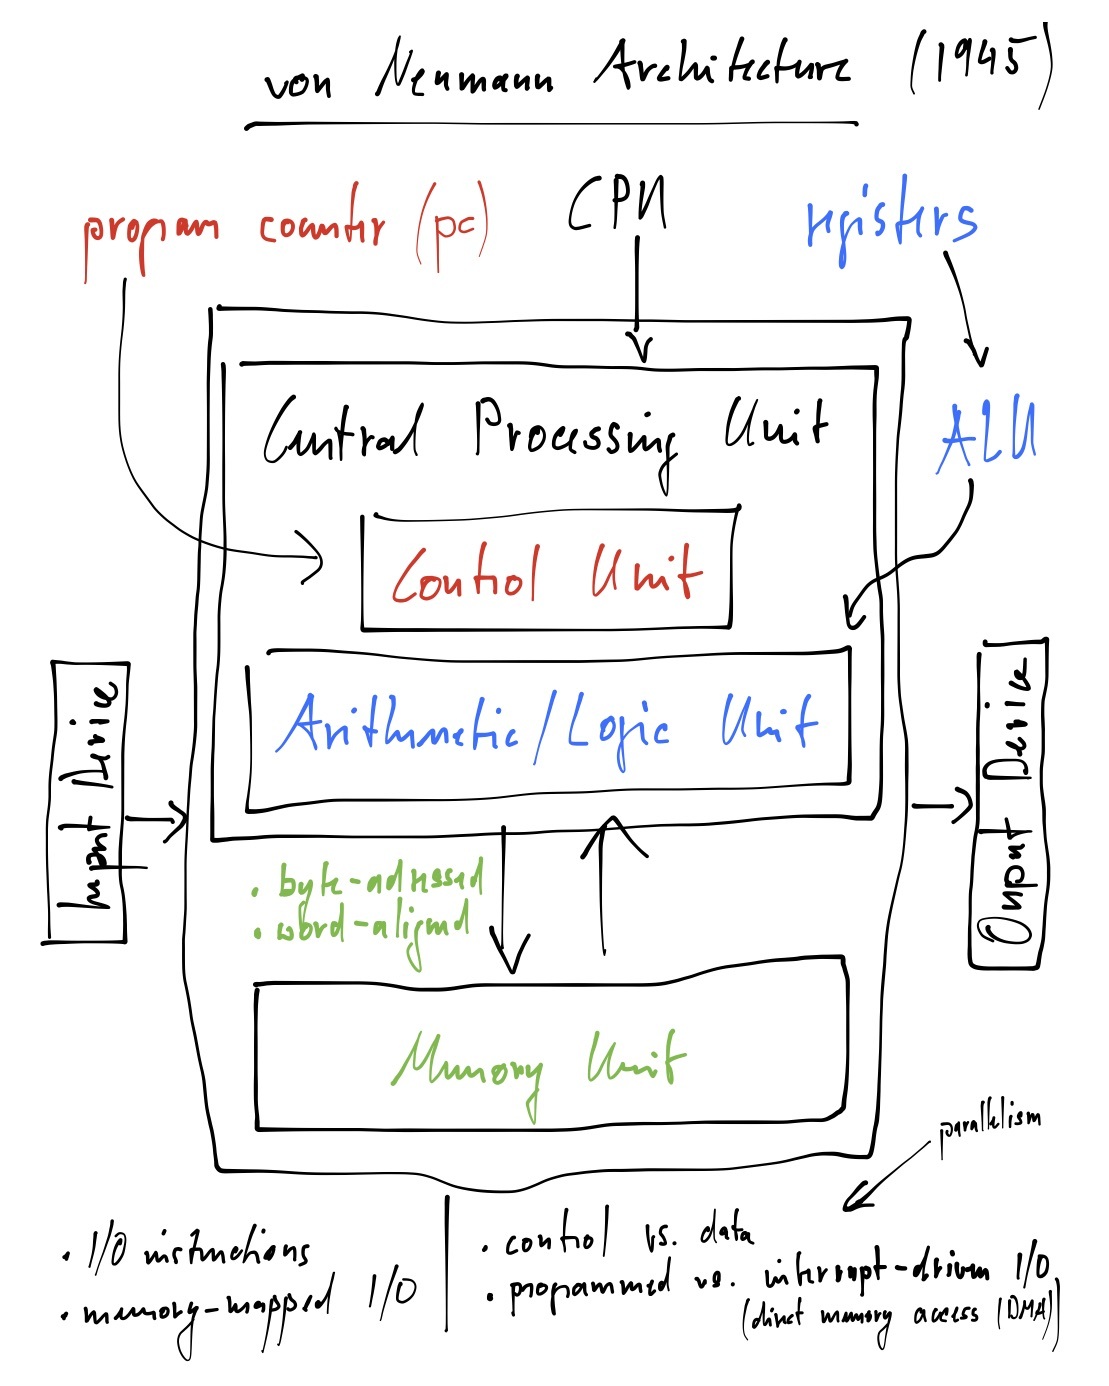 von Neumann Architecture (1945)
program counter (pc)
CPU
registers
ALU
Central Processing Unit
Control Unit
Arithmetic/Logic Unit
Input Device
Output Device
• byte-adressed
• word-aligned
Memory Unit
parallelism
• I/O instructions
• memory-mapped I/O
• control vs. data
• programmed vs. interrupt-driven I/O
(direct memory access (DMA))